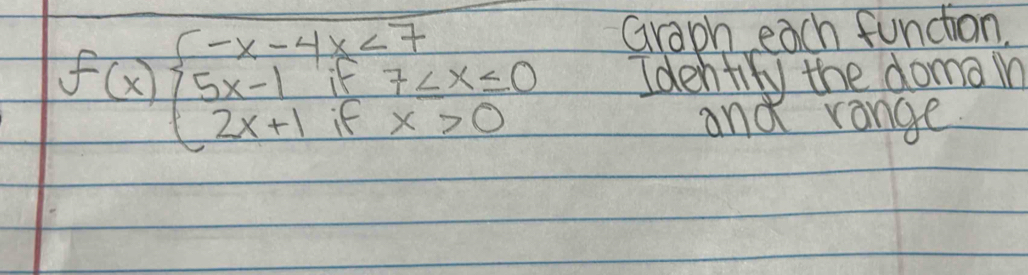 f(x) { -x-4x<7
5x-1 if 7≤x≤0
2x+1 if x>0
Graph each function.
Identify the domain
and range.